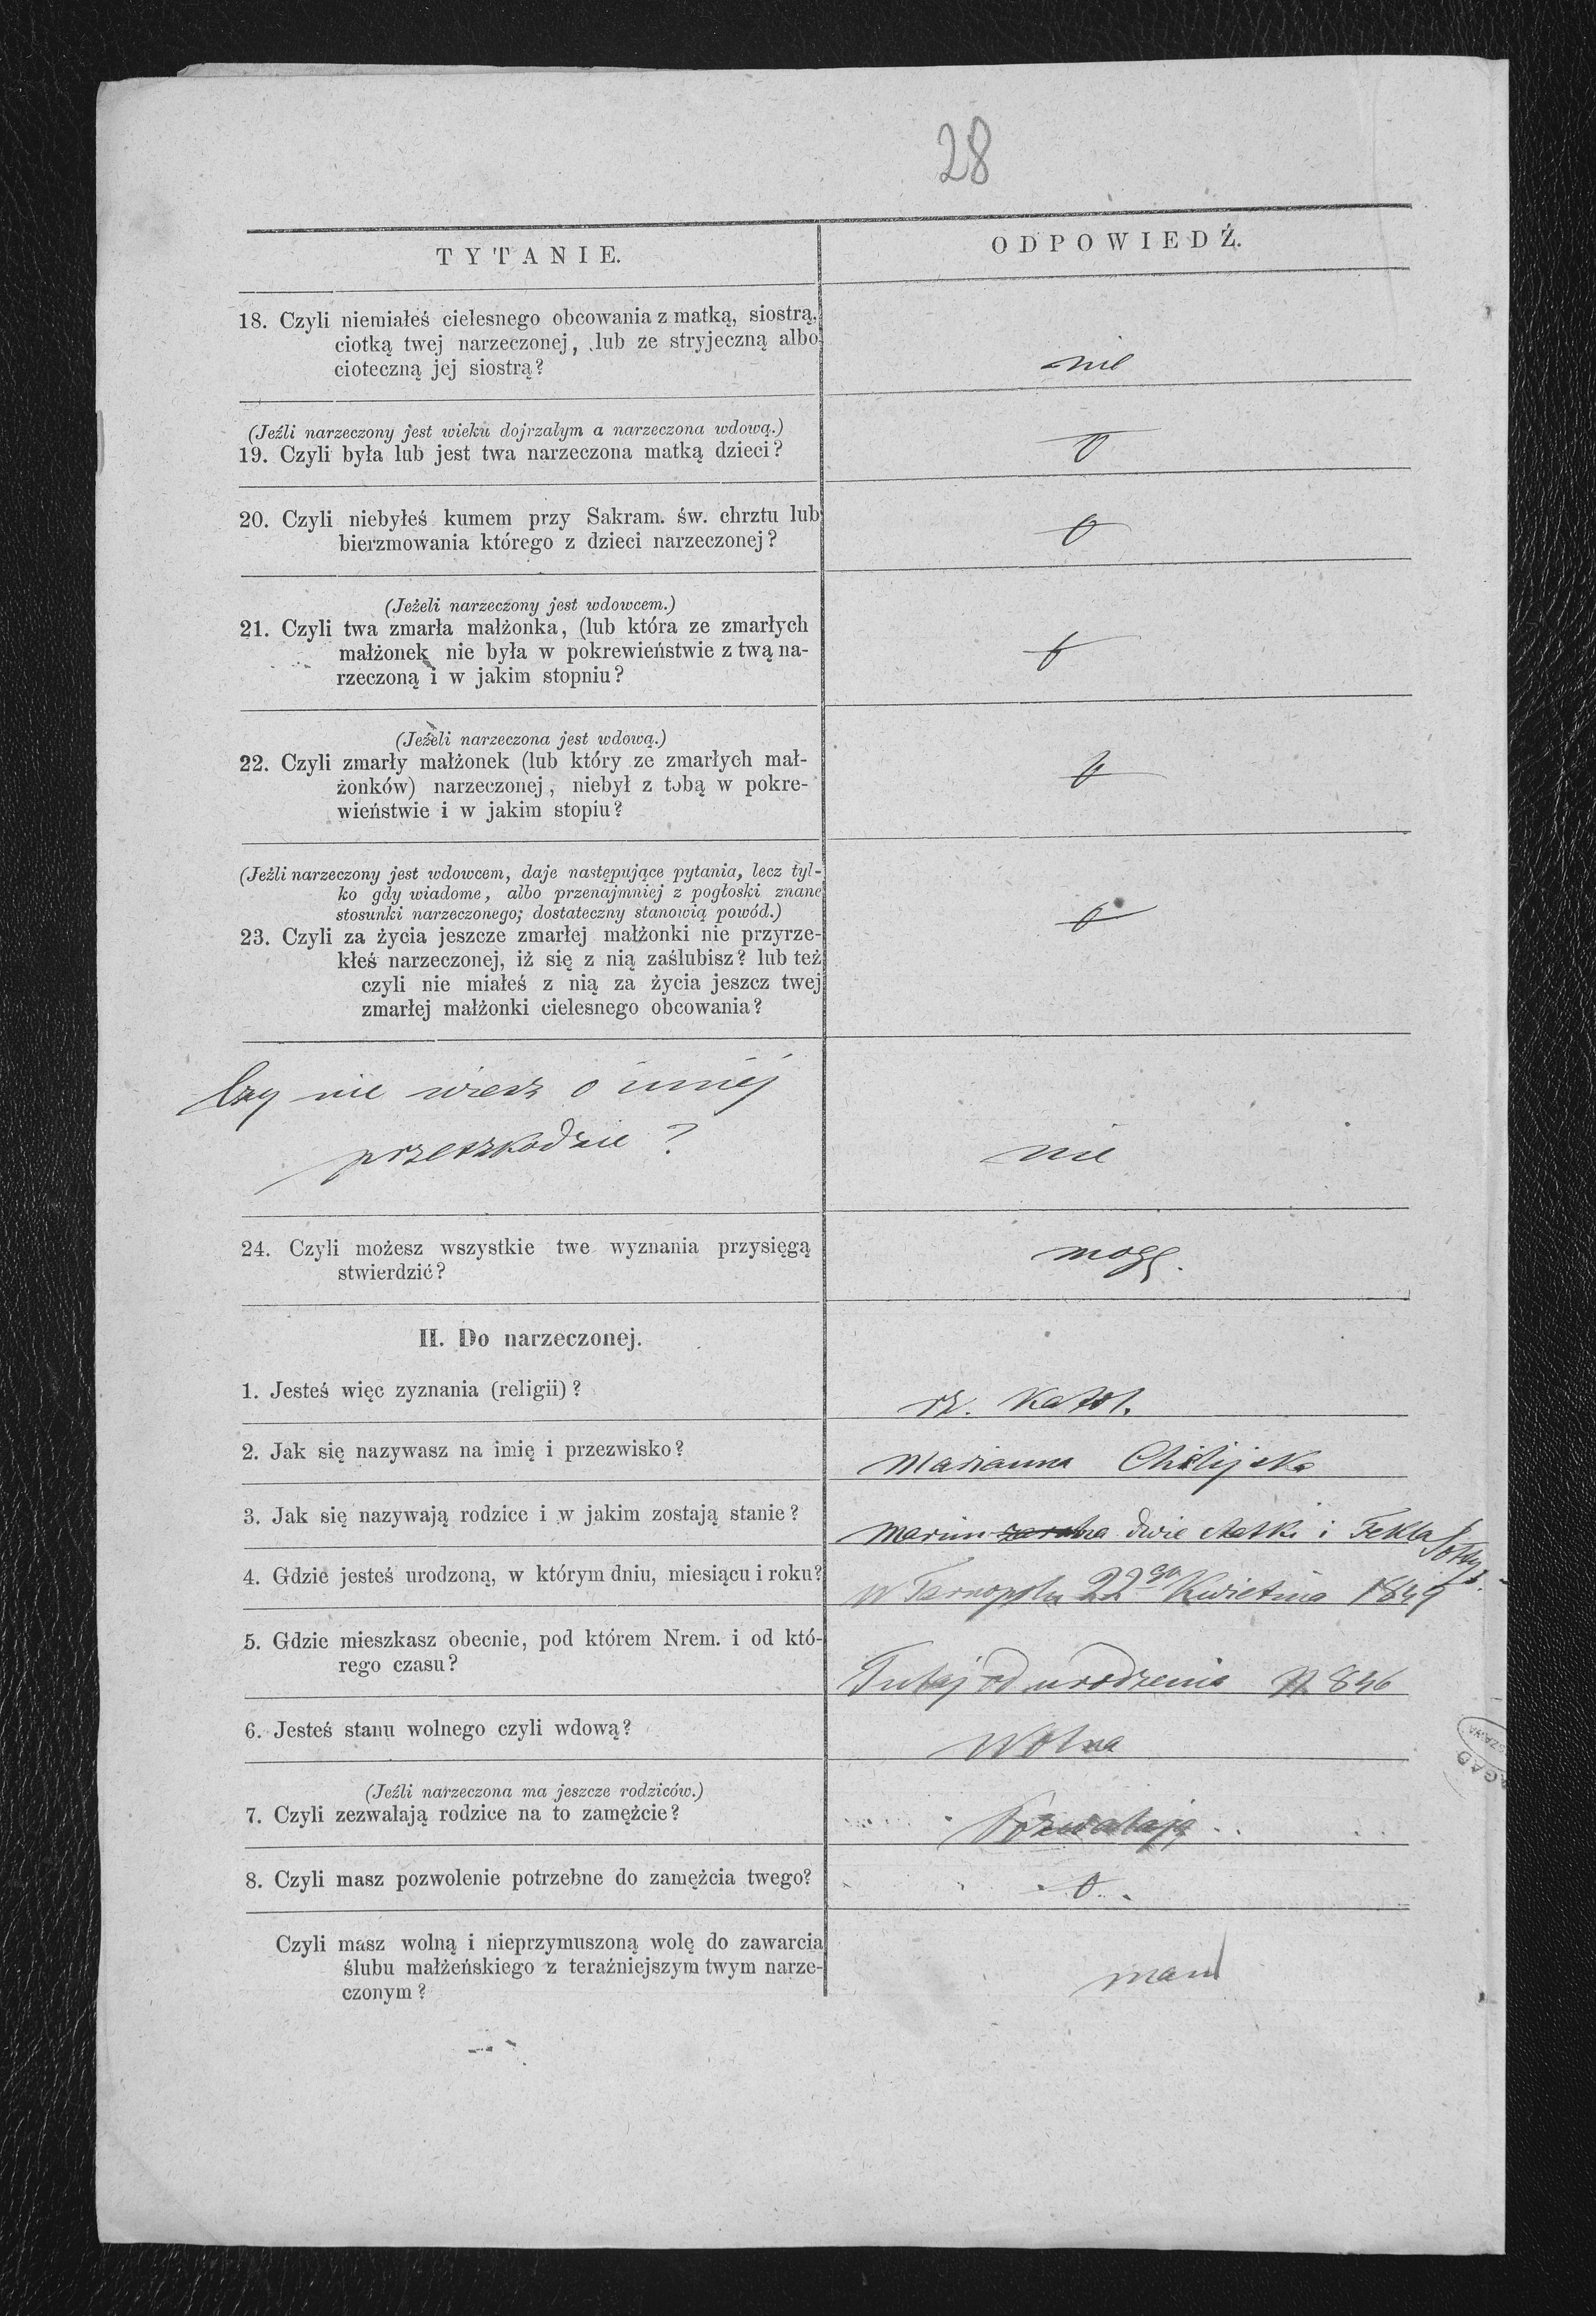 28
TYTANIE.
ODPOWIEDŹ.
18. Czyli niemiałeś cielesnego obcowania z matką, siostrą,
ciotką twej narzeczonej, lub ze stryjeczną albo
cioteczną jej siostrą?
nie
(Jeźli narzeczony jest wieku dojrzałym a narzeczona wdową.)
19. Czyli była lub jest twa narzeczona matką dzieci?
0
20. Czyli niebyłeś kumem przy Sakram. św. chrztu lub
bierzmowania którego z dzieci narzeczonej?
0
(Jeżeli narzeczony jest wdowcem.)
21. Czyli twa zmarła małżonka, (lub która ze zmarłych
małżonek nie była w pokrewieństwie z twą na-
rzeczoną i w jakim stopniu?
0
(Jeżeli narzeczona jest wdową.)
22. Czyli zmarły małżonek (lub który ze zmarłych mał-
żonków) narzeczonej, niebył z tobą w pokre-
wieństwie i w jakim stopiu?
0
(Jeżli narzeczony jest wdowcem, daje następujące pytania, lecz tyl-
ko gdy wiadome, albo przenajmniej z pogłoski znane
stosunki narzeczonego; dostateczny stanowią powód.)
23. Czyli za życia jeszcze zmarłej małżonki nie przyrze-
kłeś narzeczonej, iż się z nią zaślubisz? lub też
czyli nie miałeś z nią za życia jeszcz twej
zmarłej małżonki cielesnego obcowania?
0
Czy nie wiesz o innej
przeszkodzie?
nie
24. Czyli możesz wszystkie twe wyznania przysięgą
stwierdzić?
mogę.
II. Do narzeczonej.
1. Jesteś więc zyznania (religii)?
rz. katol.
2. Jak się nazywasz na imię i przezwisko?
Marianna
3. Jak się nazywają rodzice i w jakim zostają stanie?
i Tekla
4. Gdzie jesteś urodzoną, w którym dniu, miesiącu i roku?
W Tarnopolu 22go Kwietnia 1849
5. Gdzie mieszkasz obecnie, pod którem Nrem. i od któ-
rego czasu?
Tutaj od urodzenia N. 846
6. Jesteś stanu wolnego czyli wdową?
Wolna
(Jeźli narzeczona ma jeszcze rodziców.)
7. Czyli zezwalają rodzice na to zamężcie?
Pozwalają
8. Czyli masz pozwolenie potrzebne do zamężcia twego?
0
Czyli masz wolną i nieprzymuszoną wolę do zawarcia
ślubu małżeńskiego z teraźniejszym twym narze-
czonym?
mam
AGAD